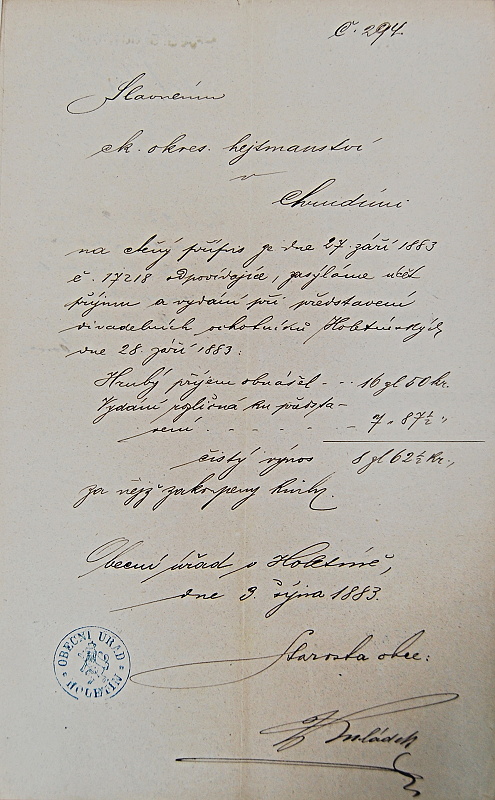 Č. 294.
Slavnému
ck. okres. hejtmanství
v
Chrudimi
na ctěný přípis ze dne 27. září 1883
č. 17218 odpovídajíce, zasýláme účet
příjmu a vydání při představení
divadelních ochotníků Holetínských
dne 28. září 1883:
Hrubý příjem obnášel - - - 16 gl 50 kr.
Vydání rozličná ku předsta-
vení - - - - - 7 „ 87½ „
čistý výnos 8 gl 62½ kr.,
za nějž zakoupeny knihy.
Obecní úřad v Holetíně,
dne 9. října 1883.
Starosta obce:
OBECNÍ ÚŘAD
HOLETÍN